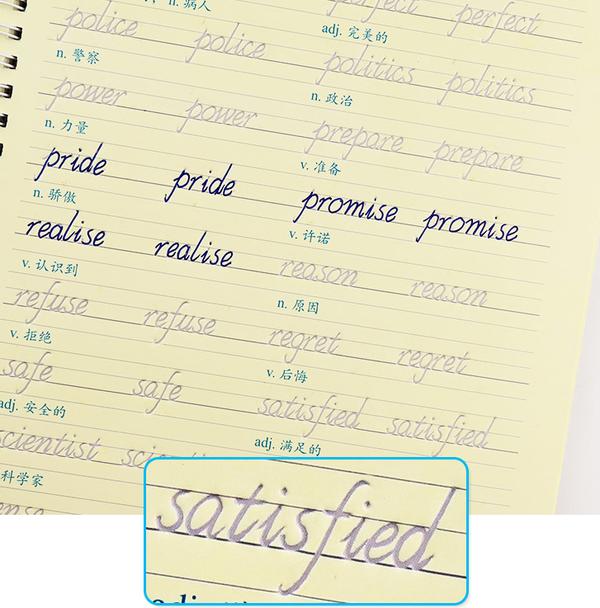 n. 病人 perfect perfect
adj. 完美的
police police
n. 警察
politics politics
n. 政治
power power
n. 力量
prepare prepare
v. 准备
pride pride
n. 骄傲
promise promise
v. 许诺
realise realise
v. 认识到
reason reason
n. 原因
refuse refuse
v. 拒绝
regret regret
v. 后悔
safe safe
adj. 安全的
satisfied satisfied
adj. 满足的
scientist
科学家
satisfied